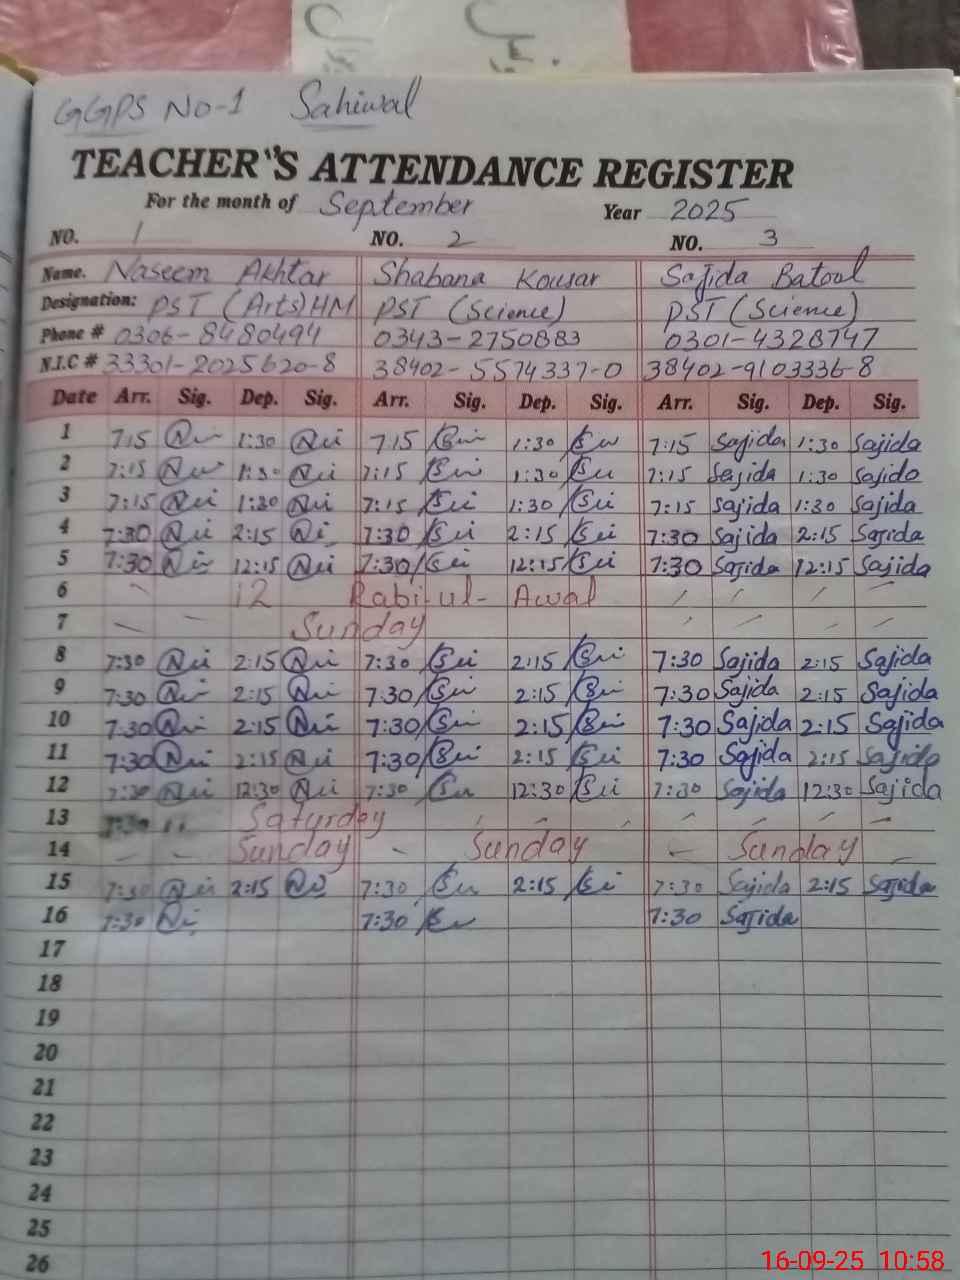 GGPS No-1 Sahiwal
TEACHER'S ATTENDANCE REGISTER
For the month of September Year 2025
NO. 1 NO. 2 NO. 3
Name. Naseem Akhtar Shabana Kousar Sajida Batool
Designation: PST (Arts) HM PST (Science) PST (Science)
Phone # 0306-8480494 0343-2750883 0301-4328747
N.I.C # 33301-2025620-8 38402-5574337-0 38402-9103336-8
Date Arr. Sig. Dep. Sig. Arr. Sig. Dep. Sig. Arr. Sig. Dep. Sig.
1 7:15 1:30 7:15 1:30 7:15 Sajida 1:30 Sajida
2 7:15 1:30 7:15 1:30 7:15 Sajida 1:30 Sajida
3 7:15 1:30 7:15 1:30 7:15 Sajida 1:30 Sajida
4 7:30 2:15 7:30 2:15 7:30 Sajida 2:15 Sajida
5 7:30 12:15 7:30 12:15 7:30 Sajida 12:15 Sajida
6 12 Rabi-ul-Awal
7 Sunday
8 7:30 2:15 7:30 2:15 7:30 Sajida 2:15 Sajida
9 7:30 2:15 7:30 2:15 7:30 Sajida 2:15 Sajida
10 7:30 2:15 7:30 2:15 7:30 Sajida 2:15 Sajida
11 7:30 2:15 7:30 2:15 7:30 Sajida 2:15 Sajida
12 7:30 12:30 7:30 12:30 7:30 Sajida 12:30 Sajida
13 Saturday
14 Sunday Sunday Sunday
15 7:30 2:15 7:30 2:15 7:30 Sajida 2:15 Sajida
16 7:30 7:30 7:30 Sajida
17
18
19
20
21
22
23
24
25
26
16-09-25 10:58